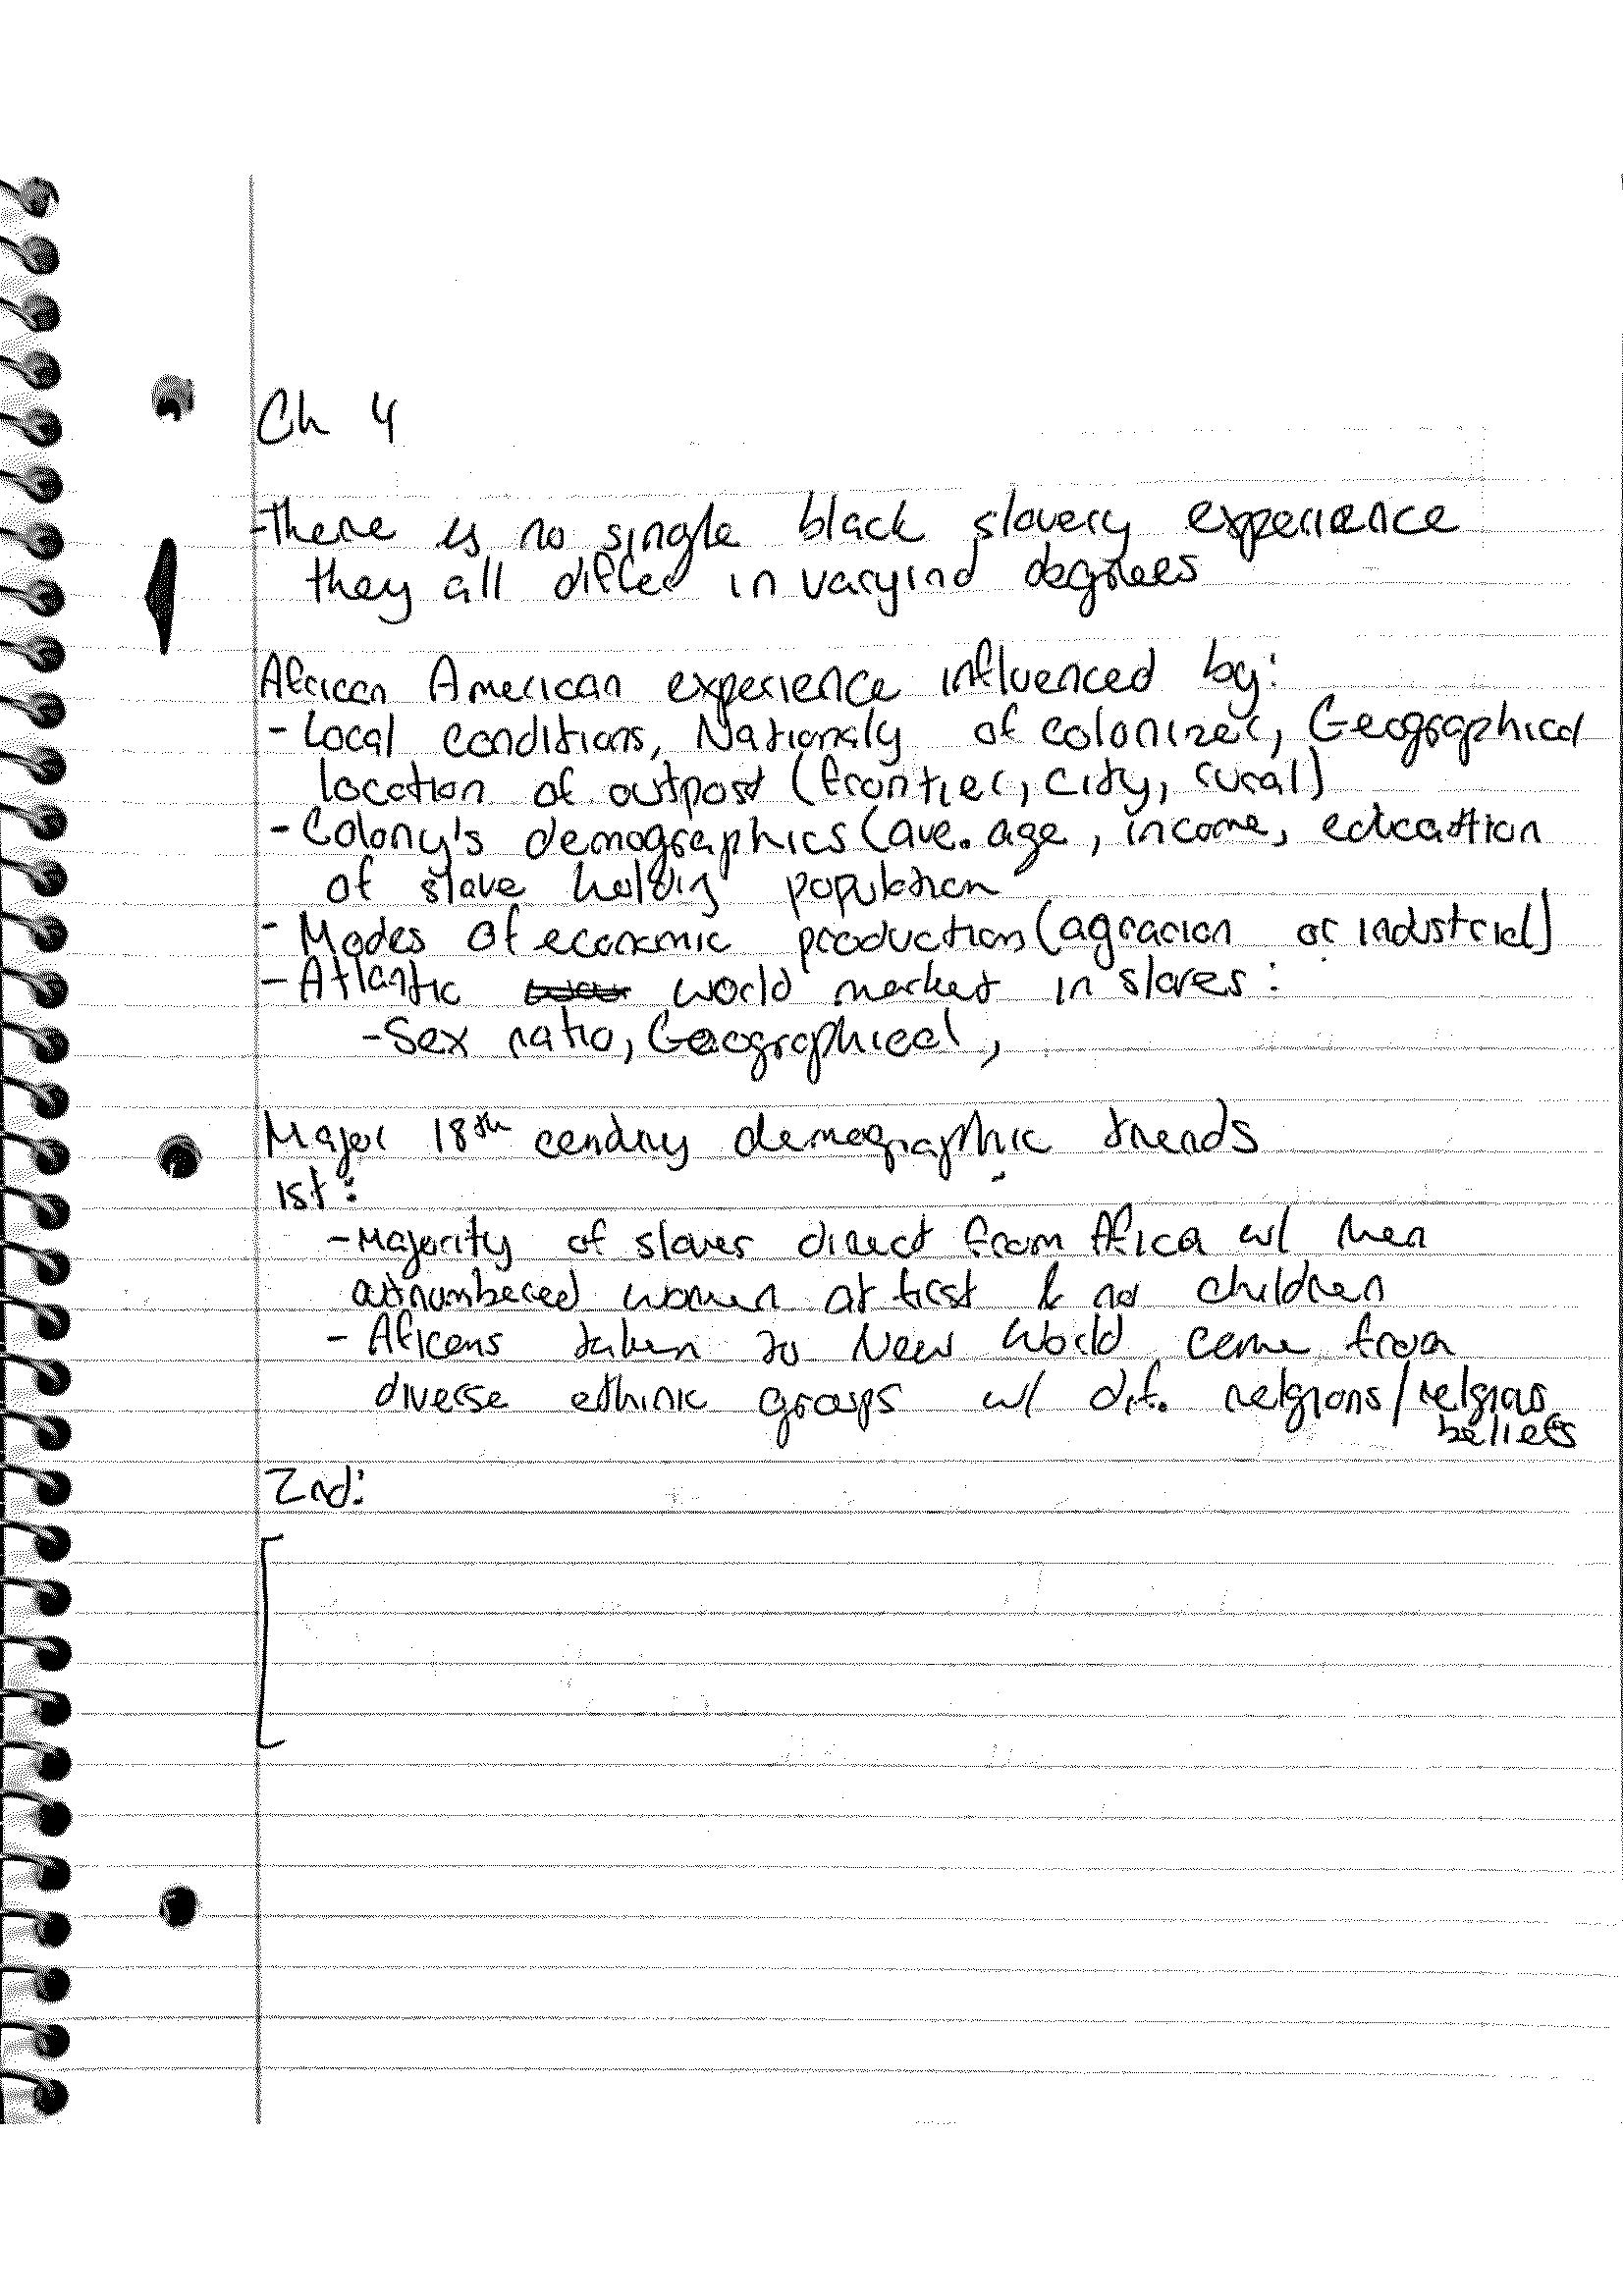 Ch 4
-There is no single black slavery experience
they all differ in varyind degrees
African American experience influenced by:
- Local conditions, Nationaly of colonizer, Geographical
location of outpost (frontier, City, rural)
- Colony's demographics (ave. age, income, education
of slave holding population
- Modes of economic production (agrarian or industrial)
- Atlantic world market in slaves:
-Sex ratio, Geographical,
Major 18th century demographic trends
1st:
- Majority of slaves direct from Africa w/ men
outnumbered women at first & no children
- Africens taken to New World came from
diverse ethinic groups w/ dif. religions/religious
beliefs
2nd: